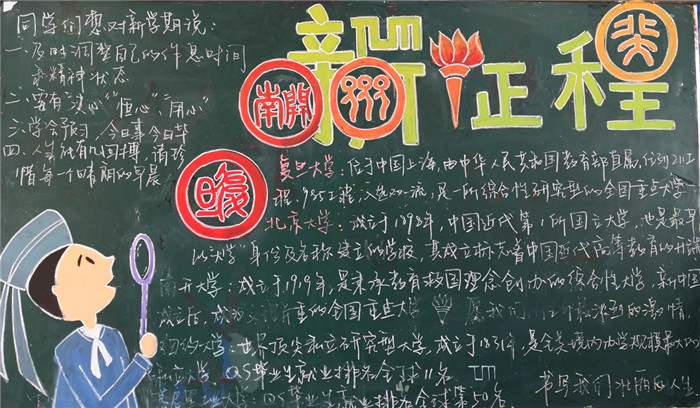 同学们想对新学期说:
一、及时调整自己的作息时间
和精神状态
二、要有"决心""恒心""用心"
三、学会预习,今日事今日毕
四、人生能有几回搏,请珍
惜每一个晴朗的早晨
新征程
南開
復旦
复旦大学:位于中国上海,由中华人民共和国教育部直属,位列211工
程、985工程,入选双一流,是一所综合性研究型的全国重点大学
北京大学:成立于1898年,中国近代第1所国立大学,也是最早
以"大学"身份及名称建立的学校,其成立标志着中国近代高等教育的开端
南开大学:成立于1919年,是秉承教育救国理念创办的综合性大学,新中国
成立后,全国重点大学 愿我们 的激情
纽约大学 世界顶尖私立研究型大学,成立于1831年,是全美境内办学规模最大的
私立大学 QS毕业生就业排名全球11名 书写我们壮丽的人生
QS毕业生就业排名全球第50名